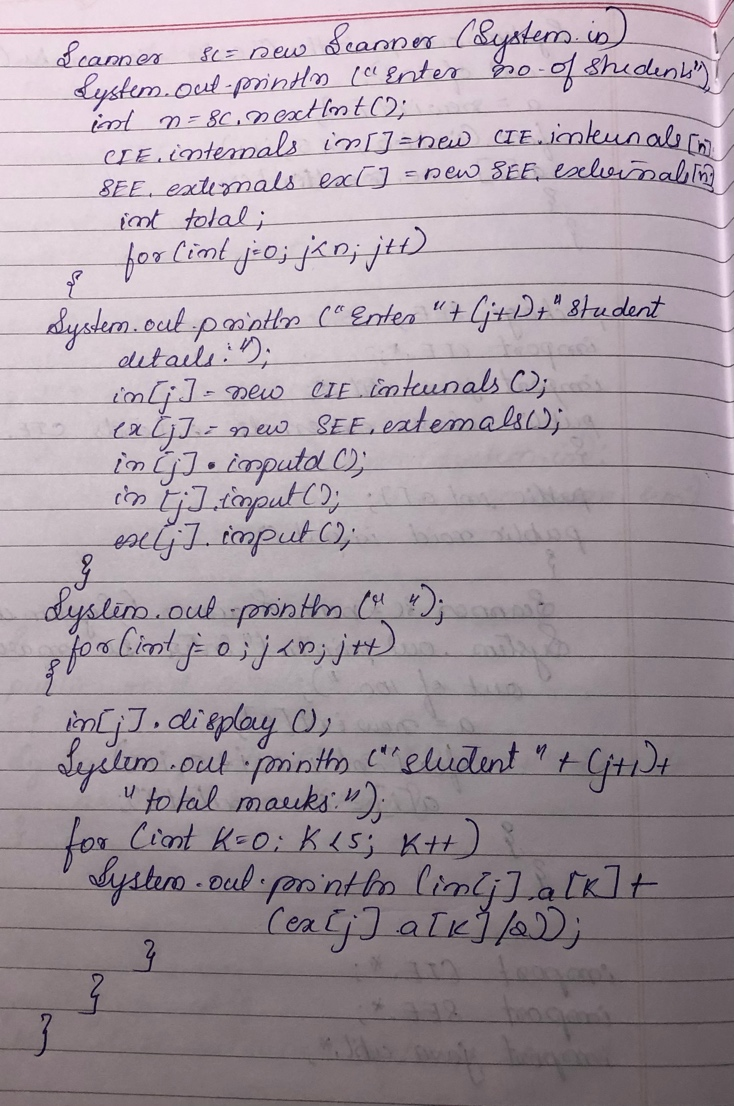 Scanner sc = new Scanner (System.in)
System.out.println ("Enter no. of students");
int n = sc.nextInt();
CIE.internals in[] = new CIE.internals[n]
SEE.externals ex[] = new SEE.externals[n]
int total;
for (int j=0; j<n; j++)
{
System.out.println ("Enter "+(j+1)+" student
details:");
in[j] = new CIE.internals();
ex[j] = new SEE.externals();
in[j].inputd();
in[j].input();
ex[j].input();
}
System.out.println (" ");
for (int j=0; j<n; j++)
{
in[j].display();
System.out.println ("student " + (j+1)+
"total marks:");
for (int K=0; K<5; K++)
System.out.println (in[j].a[K] +
(ex[j].a[K]/2));
}
}
}